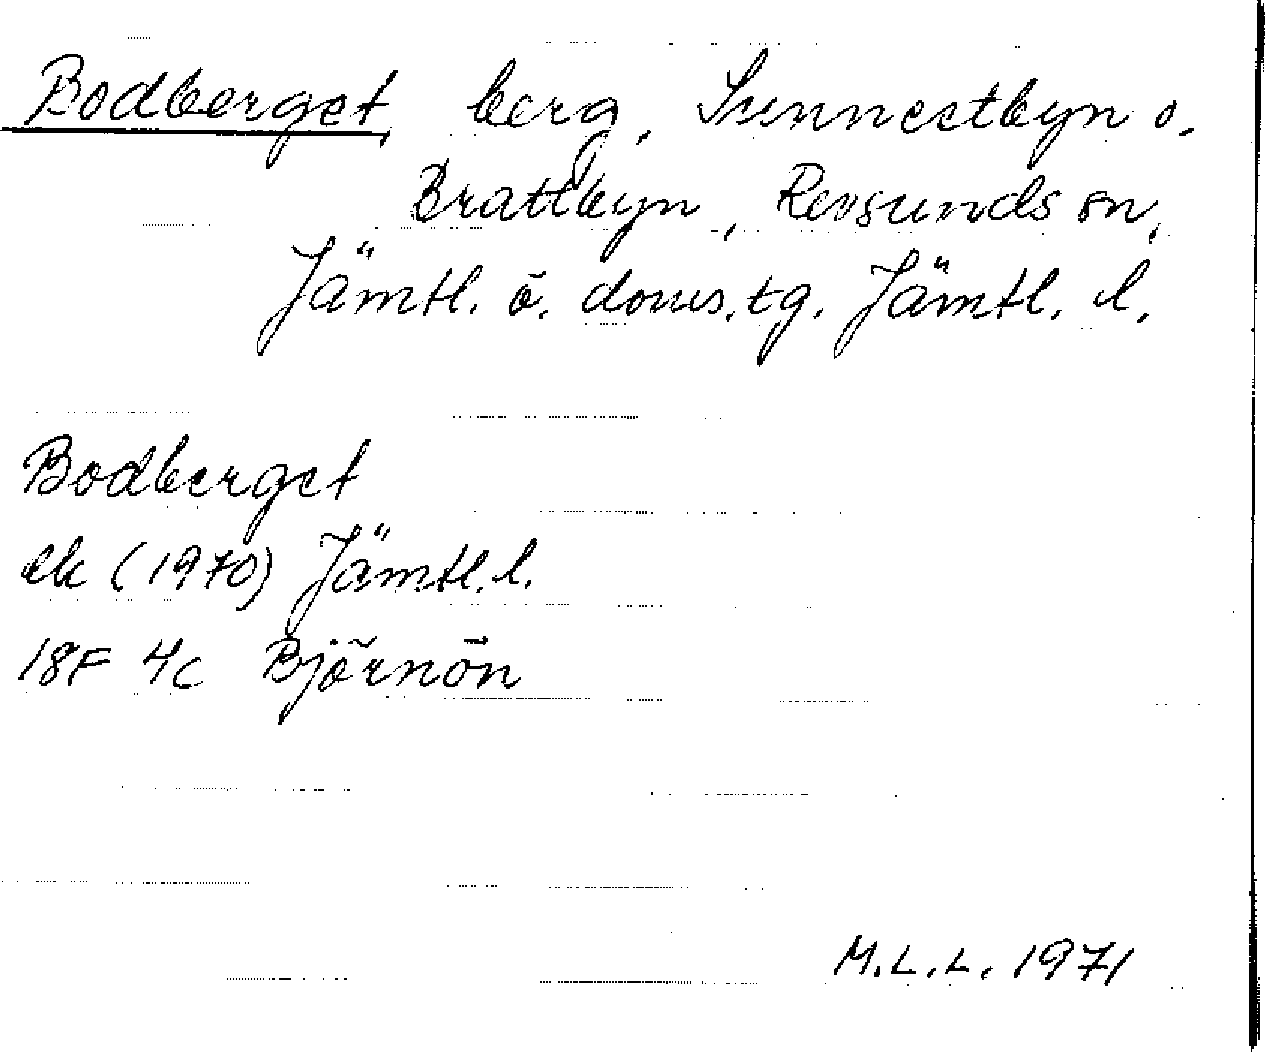 Bodberget, berg, Sunnestbyn o.
Brattbyn, Revsunds sn,
Jämtl. ö. doms.tg. Jämtl. l.
Bodberget
ek (1970) Jämtl. l.
18F 4c Björnön
M.L.L. 1971